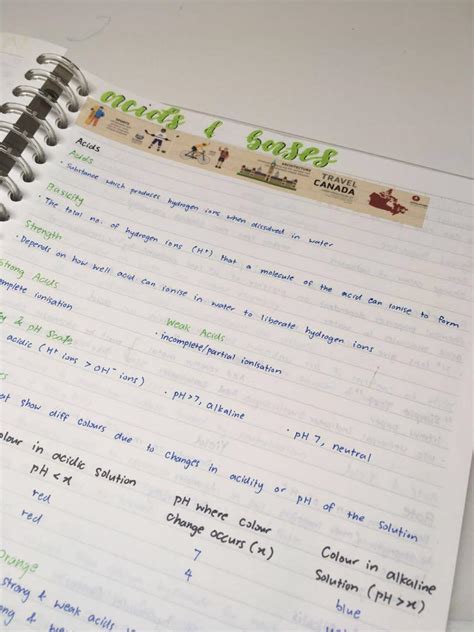 acids & bases
TRAVEL
CANADA
Acids
Acids
· Substance which produces hydrogen ions when dissolved in water
Basicity
· The total no. of hydrogen ions (H⁺) that a molecule of the acid can ionise to form
Strength
· Depends on how well acid can ionise in water to liberate hydrogen ions
Strong Acids
Weak Acids
complete ionisation
· incomplete/partial ionisation
& pH Scale
acidic (H⁺ ions > OH⁻ ions)
· pH>7, alkaline
· pH 7, neutral
show diff colours due to changes in acidity or pH of the solution
colour in acidic solution
pH < x
pH where colour
change occurs (x)
Colour in alkaline
solution (pH > x)
red
7
blue
red
4
Orange
strong & weak acids
& weak